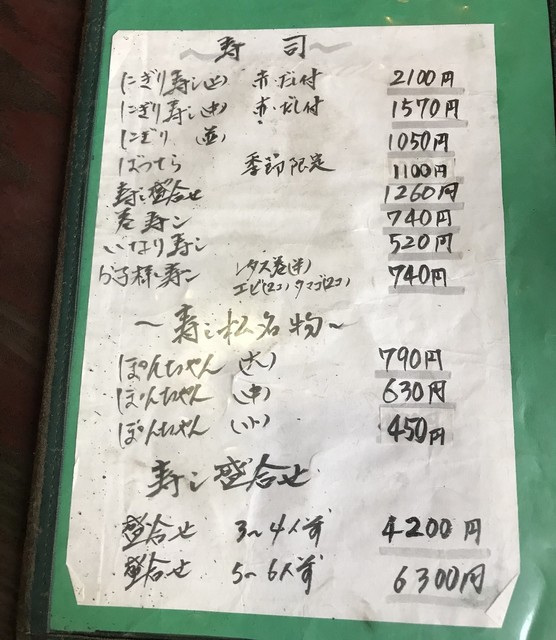 ～寿司～
にぎり寿し(上) 赤だし付 2100円
にぎり寿し(中) 赤だし付 1570円
にぎり (並) 1050円
ばってら 季節限定 1100円
寿し盛合せ 1260円
巻寿し 740円
いなり寿し 520円
お子様寿し レタス巻(半) 740円
エビ(2コ) タマゴ(2コ)
～寿し松名物～
ぽんちゃん (大) 790円
ぽんちゃん (中) 630円
ぽんちゃん (小) 450円
寿し盛合せ
盛合せ 3～4人前 4200円
盛合せ 5～6人前 6300円